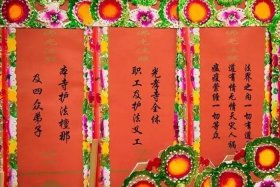 法界之内一切有道
道有情无情天灾人祸
瘟疫 一切等众
光孝寺全体
职工及护法义工
本寺护法檀那
及四众弟子